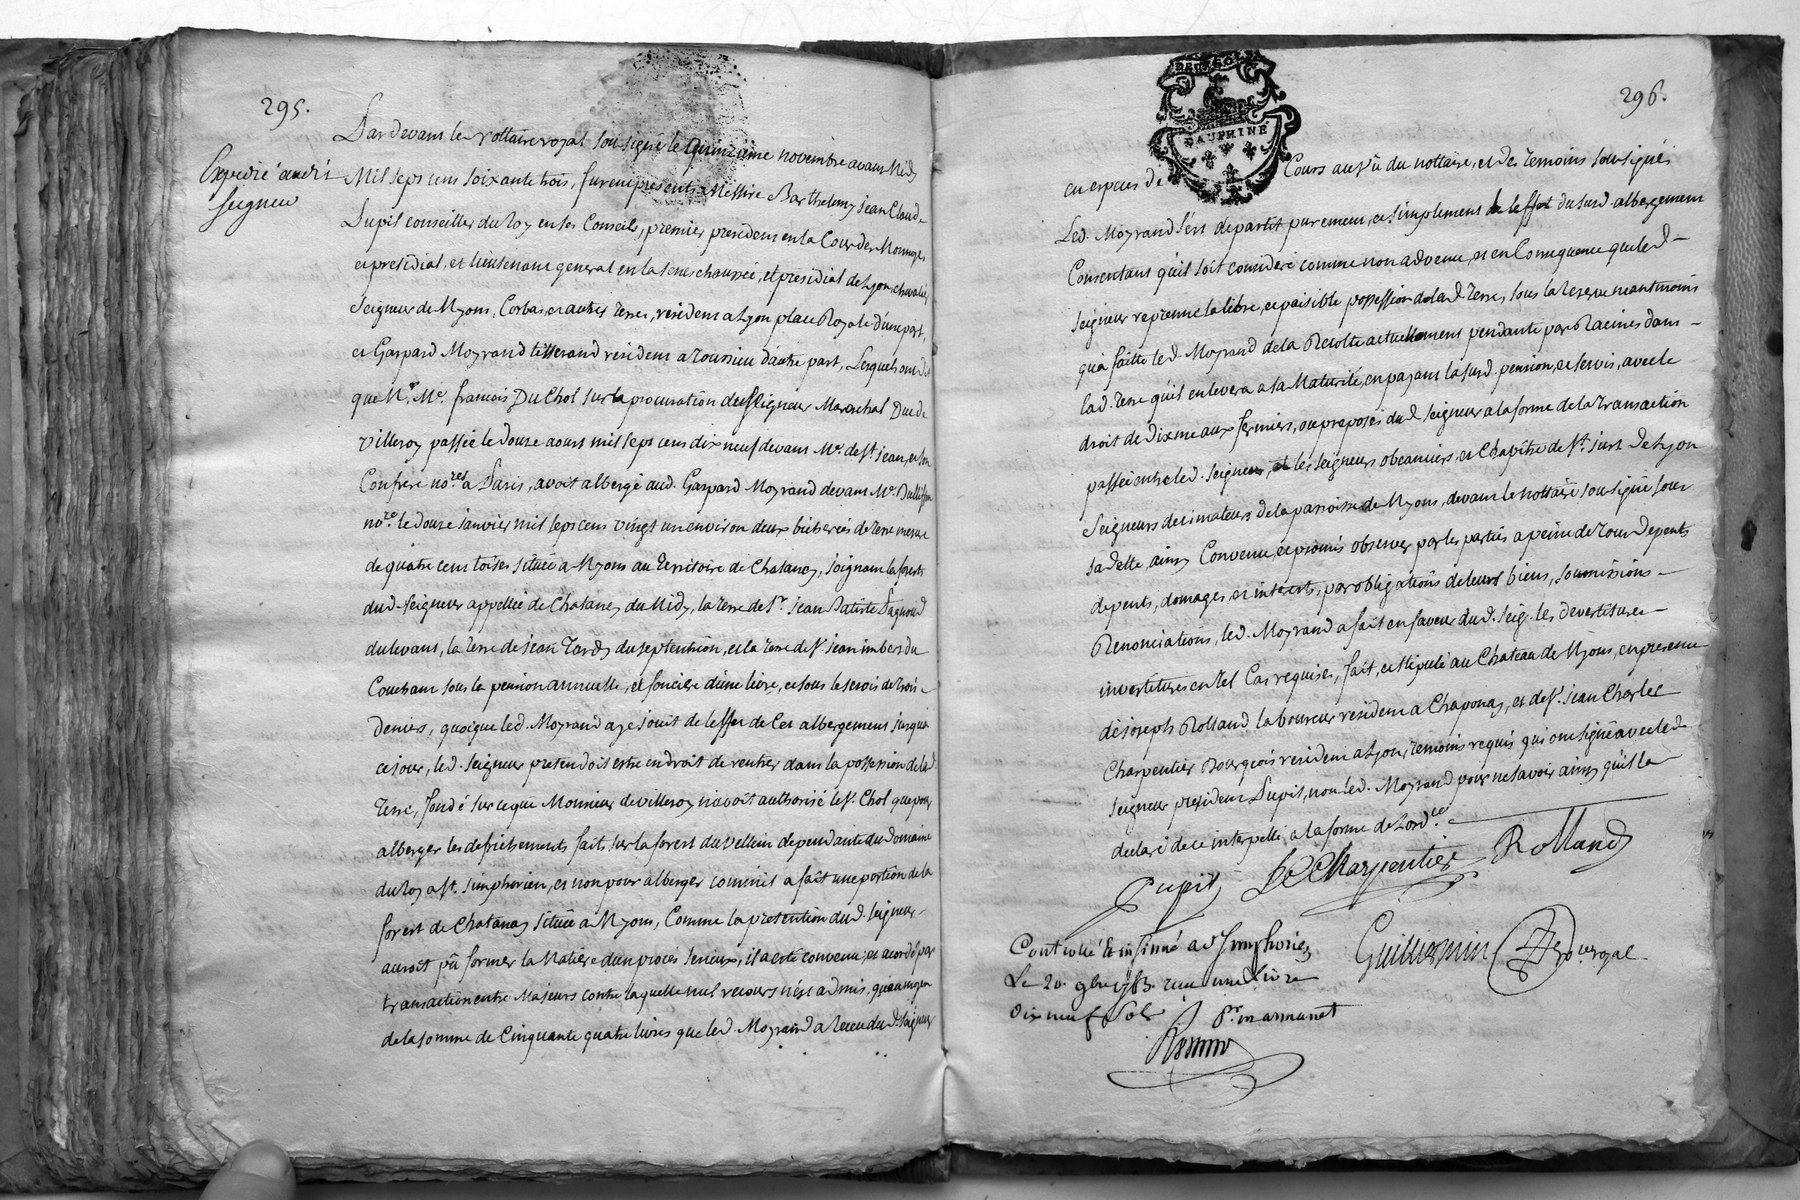 295.
Pardevant le nottaire royal sousigné le quinzieme novembre avant Midy
Expedié audit
seigneur
Mil sept cens soixante trois, furent presents Messire Barthelemy jean Claude
Dupuil conseiller du roy en ses Conseils, premier president en la Cour des Monnoyes
et presidial, et lieutenant general en la senechaussée, et presidial de Lyon, chevalier
seigneur de Myons, Corbas et autres terres, resident a Lyon place Royale d'une part,
et Gaspard Moyrand tisserand resident a toussieu d'autre part, Lesquels ont dit
que Mr. Me. francois DuChol sur la procuration de seigneur Marechal Duc de
Villeroy passée le douze aoust mil sept cens dix neuf devant Me. de St. jean, et son
Confrere nores a Paris, avoit albergé aud. Gaspard Moyrand devant Me.
nore. le douze janvier mil sept cens vingt un environ deux bicherées de terre mesure
de quatre cent toises située a Myons au territoire de Chatanay, joignant la forest
dud. seigneur appellée de Chatanay du Midy, la terre de Sr. jean Batiste Pagnoud
du levant, la terre de jean Tardy du septentrion, et la terre de Sr. jean imbert du
Couchant sous la pension annuelle, et fonciere d'une livre, et sous le servis de trois
deniers, quoique led. Moyrand aye jouit de l'effet de Cet albergement jusqu'a
ce jour, led. seigneur pretendoit estre en droit de rentrer dans la possession de lad.
terre, fondé sur ce que Monsieur de villeroy n'avoit authorisé le Sr. Chol que pour
alberger les defrichements faits sur la forest du Vellein dependante du domaine
du roy a St. simphorien, et non pour alberger comme il a fait une portion de la
forest de Chatanay située a Myons, Comme la pretention dud. seigneur
auroit pû former la Matiere d'un procès serieux, il a eté convenu, et acordé par
transaction entre Majeurs contre laquelle nul recours n'est admis, qu'au moyen
de la somme de Cinquante quatre livres que led. Moyrand a receu dud. Seigneur
296.
DAUPHINÉ
en especes de Cours au vû du nottaire, et des temoins sousignés
Led. Moyrand s'est departit purement, et simplement de l'effet dusud. albergement
Consentant qu'il soit consideré comme non advenu, et en Consequence que led.
seigneur reprenne la libre, et paisible possession de lad. terre, sous la reserve neantmoins
qu'a faitte led. Moyrand de la Recolte actuellement pendante par Racines dans
lad. terre qu'il enlevera a sa Maturité, en payant la susd. pension, et servis, avec le
droit de dixme aux fermiers, ou preposés dud. seigneur a la forme de la transaction
passée entre led. seigneur, et les seigneurs obeanciers et Chapitre de St. just de Lyon
seigneurs decimateurs de la parroisse de Myons, devant le nottaire sousigné sous
sa datte, ainsy Convenu, et promis observer par les parties a peine de tous depents
depents, domages et interets, par obligations de leurs biens, soumissions
Renonciations, led. Moyrand a fait en faveur dud. seig. les devestitures
investitures en tel Cas requises, fait, et stipulé au Chateau de Myons, en presence
de joseph Rolland laboureur resident a Chaponay, et de Sr. jean Charles
Charpentier Bourgeois resident a Lyon, temoins requis qui ont signé avec led.
seigneur president Dupuil, non led. Moyrand pour ne savoir ainsy qu'il l'a
declaré de ce interpellé a la forme de l'ordce
Dupuil LeCharpentier Rolland
Guillermin nore. royal
Controllé & insinué a St. Simphorien
Le 20. 9bre 1763. recu une Livre
dix neuf Sols